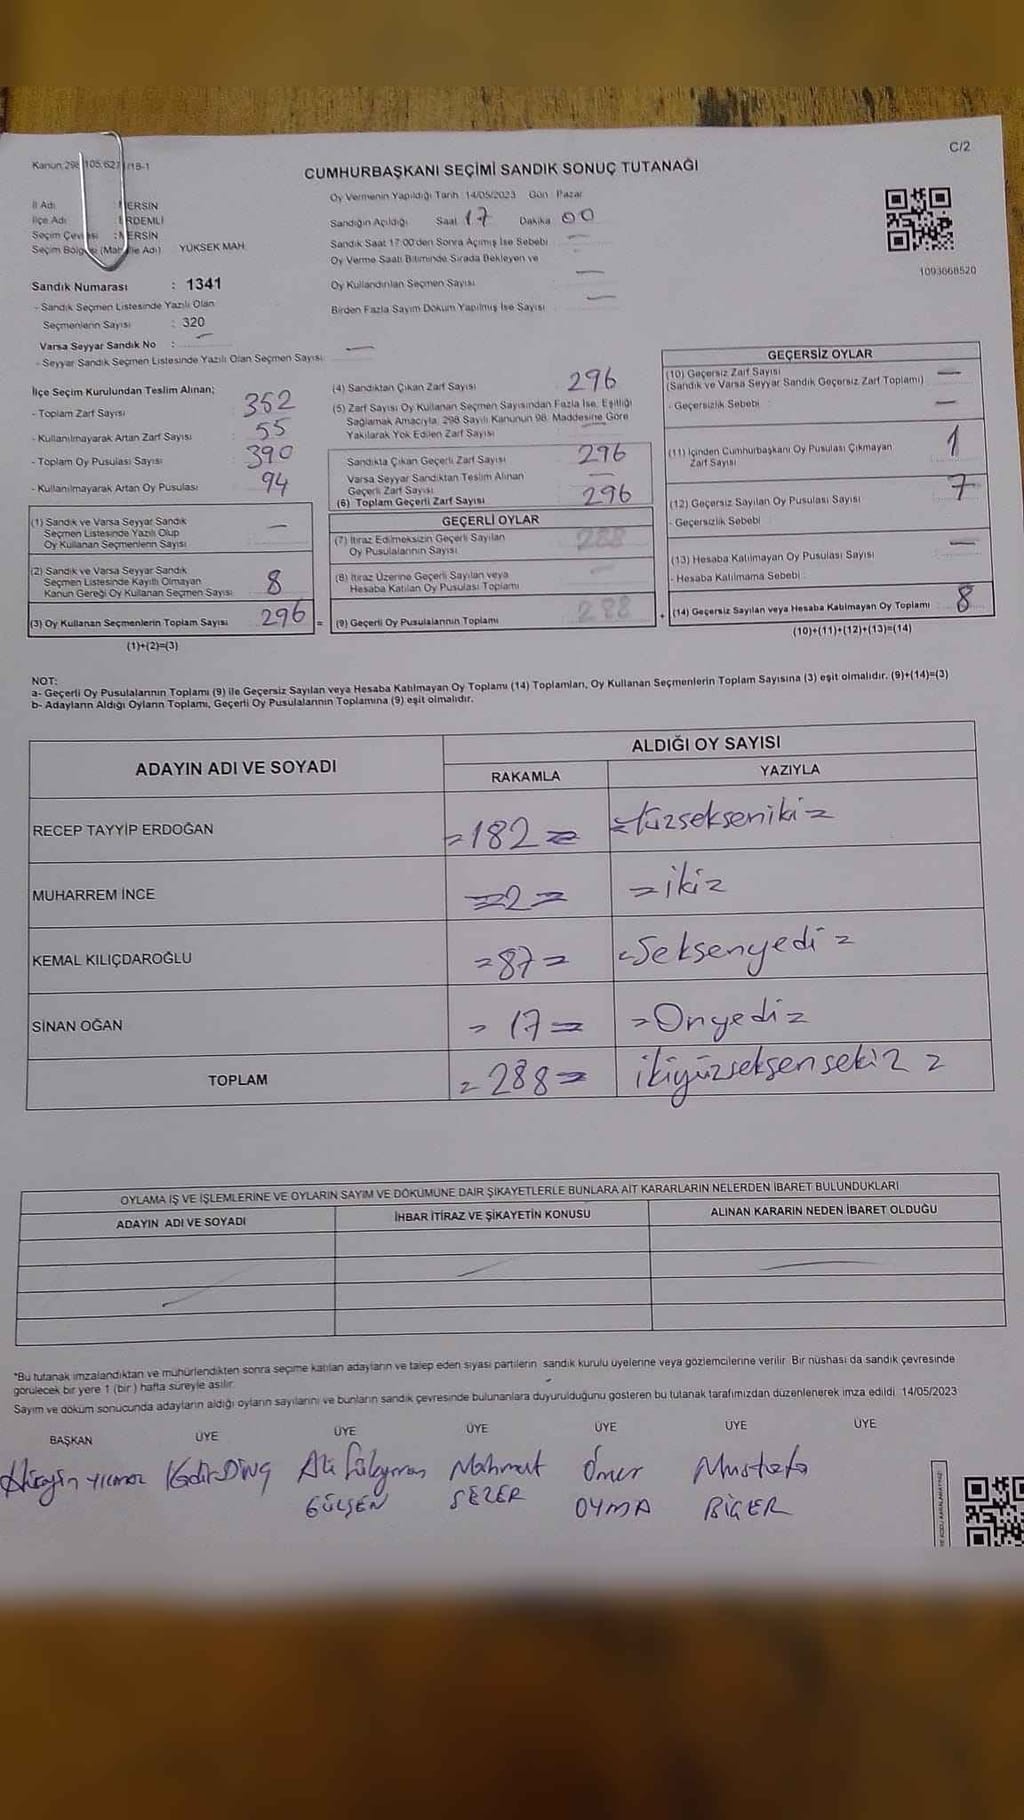 C/2
Kanun 298 105, 627 /18-1
CUMHURBAŞKANI SEÇİMİ SANDIK SONUÇ TUTANAĞI
İl Adı : MERSİN
İlçe Adı : ERDEMLİ
Seçim Çevresi : MERSİN
Seçim Bölgesi (Mahalle Adı) YÜKSEK MAH.
Oy Vermenin Yapıldığı Tarih : 14/05/2023 Gün : Pazar
Sandığın Açıldığı Saat 17 Dakika 00
Sandık Saat 17:00'den Sonra Açımış İse Sebebi
Oy Verme Saati Bitiminde Sırada Bekleyen ve
Oy Kullandırılan Seçmen Sayısı
Birden Fazla Sayım Döküm Yapılmış İse Sayısı
1093668520
Sandık Numarası : 1341
- Sandık Seçmen Listesinde Yazılı Olan
Seçmenlerin Sayısı : 320
Varsa Seyyar Sandık No :
- Seyyar Sandık Seçmen Listesinde Yazılı Olan Seçmen Sayısı
İlçe Seçim Kurulundan Teslim Alınan;
- Toplam Zarf Sayısı 352
- Kullanılmayarak Artan Zarf Sayısı 55
- Toplam Oy Pusulası Sayısı 390
- Kullanılmayarak Artan Oy Pusulası 94
(1) Sandık ve Varsa Seyyar Sandık
Seçmen Listesinde Yazılı Olup
Oy Kullanan Seçmenlerin Sayısı —
(2) Sandık ve Varsa Seyyar Sandık
Seçmen Listesinde Kayıtlı Olmayan
Kanun Gereği Oy Kullanan Seçmen Sayısı 8
(3) Oy Kullanan Seçmenlerin Toplam Sayısı 296
(1)+(2)=(3)
(4) Sandıktan Çıkan Zarf Sayısı 296
(5) Zarf Sayısı Oy Kullanan Seçmen Sayısından Fazla İse, Eşitliği
Sağlamak Amacıyla, 298 Sayılı Kanunun 98. Maddesine Göre
Yakılarak Yok Edilen Zarf Sayısı
Sandıkta Çıkan Geçerli Zarf Sayısı 296
Varsa Seyyar Sandıktan Teslim Alınan
Geçerli Zarf Sayısı —
(6) Toplam Geçerli Zarf Sayısı 296
GEÇERLİ OYLAR
(7) İtiraz Edilmeksizin Geçerli Sayılan
Oy Pusulalarının Sayısı 288
(8) İtiraz Üzerine Geçerli Sayılan veya
Hesaba Katılan Oy Pusulası Toplamı
= (9) Geçerli Oy Pusulalarının Toplamı 288
GEÇERSİZ OYLAR
(10) Geçersiz Zarf Sayısı —
(Sandık ve Varsa Seyyar Sandık Geçersiz Zarf Toplamı)
- Geçersizlik Sebebi : —
(11) İçinden Cumhurbaşkanı Oy Pusulası Çıkmayan 1
Zarf Sayısı
(12) Geçersiz Sayılan Oy Pusulası Sayısı 7
- Geçersizlik Sebebi
(13) Hesaba Katılmayan Oy Pusulası Sayısı —
- Hesaba Katılmama Sebebi :
+ (14) Geçersiz Sayılan veya Hesaba Katılmayan Oy Toplamı 8
(10)+(11)+(12)+(13)=(14)
NOT:
a- Geçerli Oy Pusulalarının Toplamı (9) ile Geçersiz Sayılan veya Hesaba Katılmayan Oy Toplamı (14) Toplamları, Oy Kullanan Seçmenlerin Toplam Sayısına (3) eşit olmalıdır. (9)+(14)=(3)
b- Adayların Aldığı Oyların Toplamı, Geçerli Oy Pusulalarının Toplamına (9) eşit olmalıdır.
ADAYIN ADI VE SOYADI
ALDIĞI OY SAYISI
RAKAMLA YAZIYLA
RECEP TAYYİP ERDOĞAN =182= =Yüzsekseniki=
MUHARREM İNCE =2= =iki=
KEMAL KILIÇDAROĞLU =87= =Seksenyedi=
SİNAN OĞAN =17= =Onyedi=
TOPLAM =288= ikiyüzseksensekiz=
OYLAMA İŞ VE İŞLEMLERİNE VE OYLARIN SAYIM VE DÖKÜMÜNE DAİR ŞİKAYETLERLE BUNLARA AİT KARARLARIN NELERDEN İBARET BULUNDUKLARI
ADAYIN ADI VE SOYADI İHBAR İTİRAZ VE ŞİKAYETİN KONUSU ALINAN KARARIN NEDEN İBARET OLDUĞU
*Bu tutanak imzalandıktan ve mühürlendikten sonra seçime katılan adayların ve talep eden siyasi partilerin sandık kurulu üyelerine veya gözlemcilerine verilir. Bir nüshası da sandık çevresinde
görülecek bir yere 1 (bir) hafta süreyle asılır.
Sayım ve döküm sonucunda adayların aldığı oyların sayılarını ve bunların sandık çevresinde bulunanlara duyurulduğunu gösteren bu tutanak tarafımızdan düzenlenerek imza edildi. 14/05/2023
BAŞKAN ÜYE ÜYE ÜYE ÜYE ÜYE ÜYE
Hüseyin YILMAZ Kadir DİNÇ Ali Süleyman Mahmut Ömer Mustafa
GÜLŞEN SEZER OYMA BİÇER